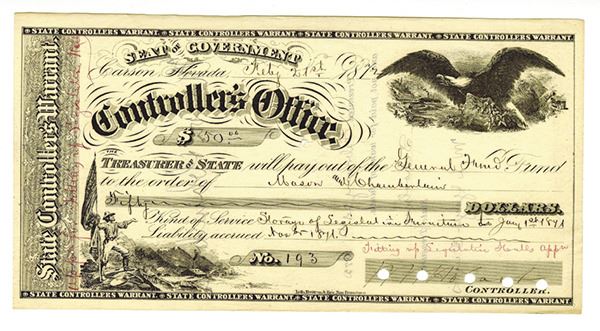 STATE CONTROLLERS WARRANT. STATE CONTROLLERS WARRANT. STATE CONTROLLERS WARRANT.
State Controller's Warrant.
SEAT OF GOVERNMENT
Carson Nevada, Feby 21st 187
Controller's Office.
$ 50.00
THE TREASURER OF STATE will pay out of the General Fund Fund
to the order of Mason and Chamberlain
Fifty DOLLARS.
Kind of Service Storage of Legislative Furniture to Jany 1st 1871
Liability accrued 1871.
Fitting up Legislative Halls Appn
No. 193
CONTROLLER.
STATE CONTROLLERS WARRANT. STATE CONTROLLERS WARRANT. STATE CONTROLLERS WARRANT.